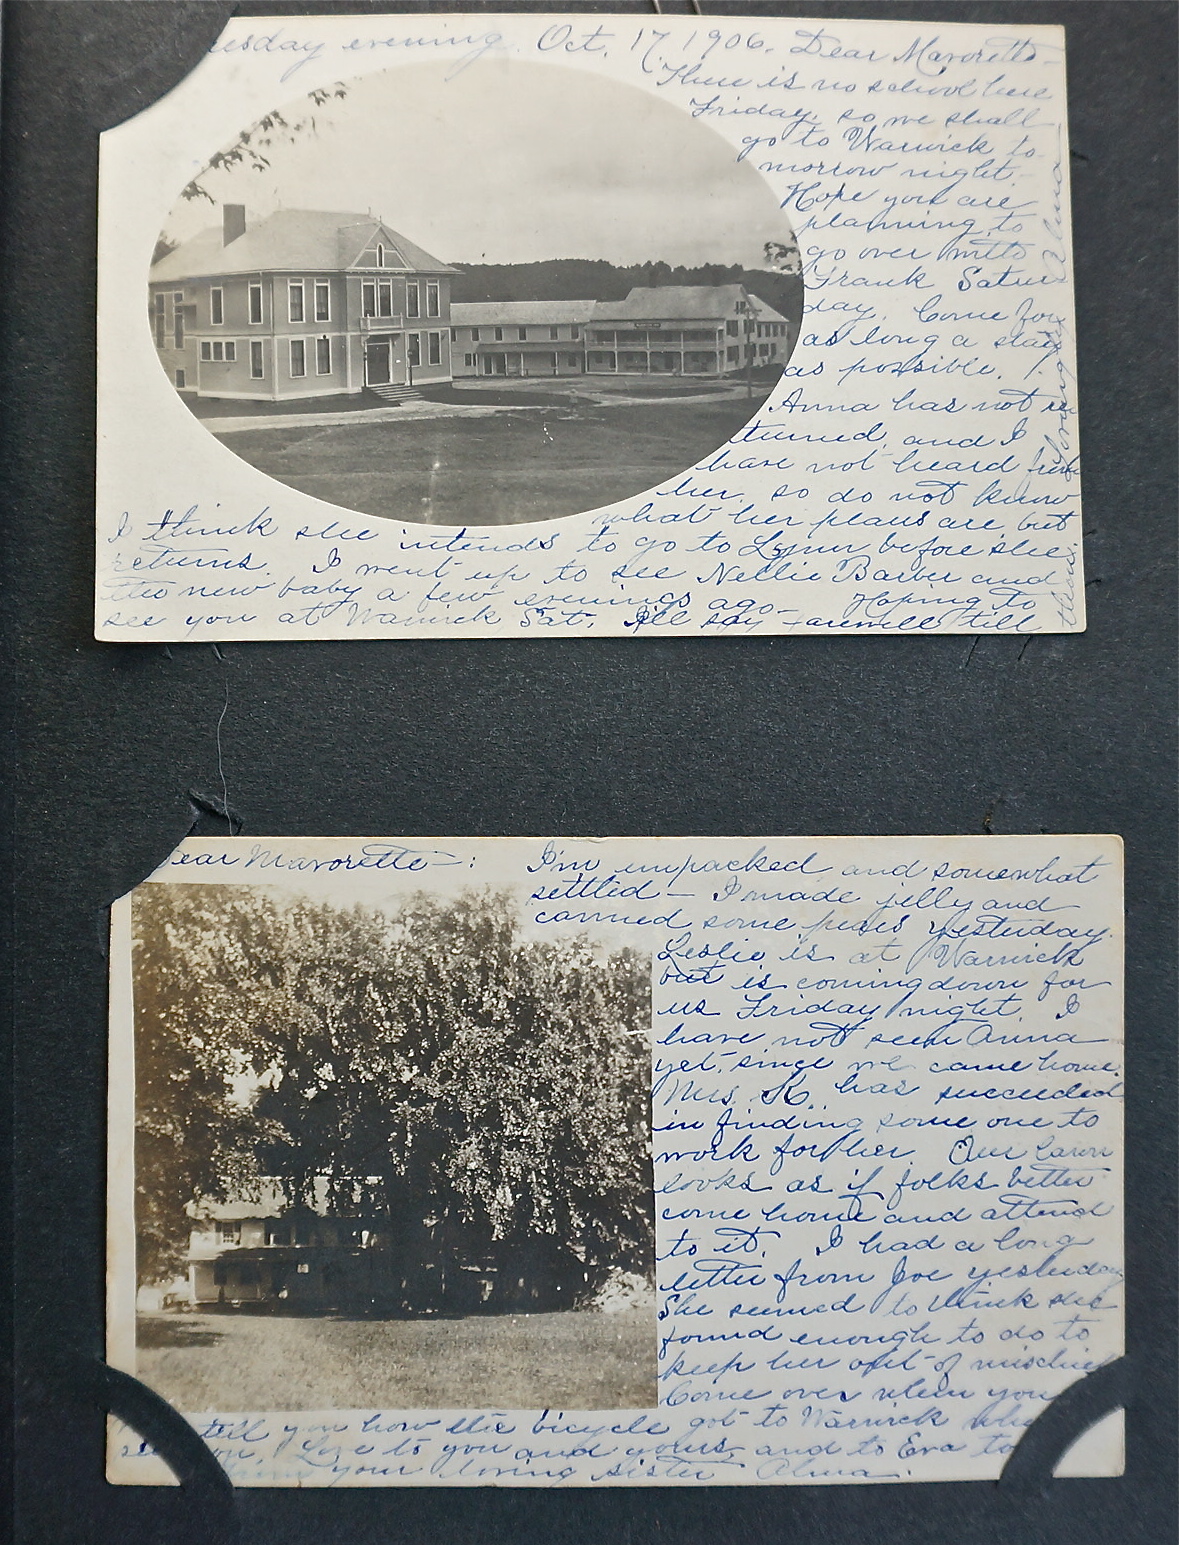 esday evening. Oct. 17, 1906. Dear Mavorette-
There is no school here
Friday, so we shall
go to Warwick to-
morrow night.
Hope you are
planning to
go over with
Frank Satur
day. Come for
as long a stay
as possible.
Anna has not re
turned, and I
have not heard from
her, so do not know
what her plans are but
I think she intends to go to Lynn before she
returns. I went up to see Nellie Barber and
the new baby a few evenings ago- Hoping to
see you at Warwick Sat. I'll say farewell till
then.
Lovingly Alma
Dear Mavorette-: I'm unpacked and somewhat
settled - I made jelly and
canned some pears yesterday.
Leslie is at Warwick
but is coming down for
us Friday night. I
have not seen Anna
yet, since we came home.
Mrs. K. has succeeded
in finding some one to
work for her. Our lawn
looks as if folks better
come home and attend
to it. I had a long
letter from Joe yesterday
She seemed to think she
found enough to do to
keep her out of mischief
Come over when you
tell you how the bicycle got to Warwick
you. Love to you and yours, and to Eva too
from your loving sister Alma.